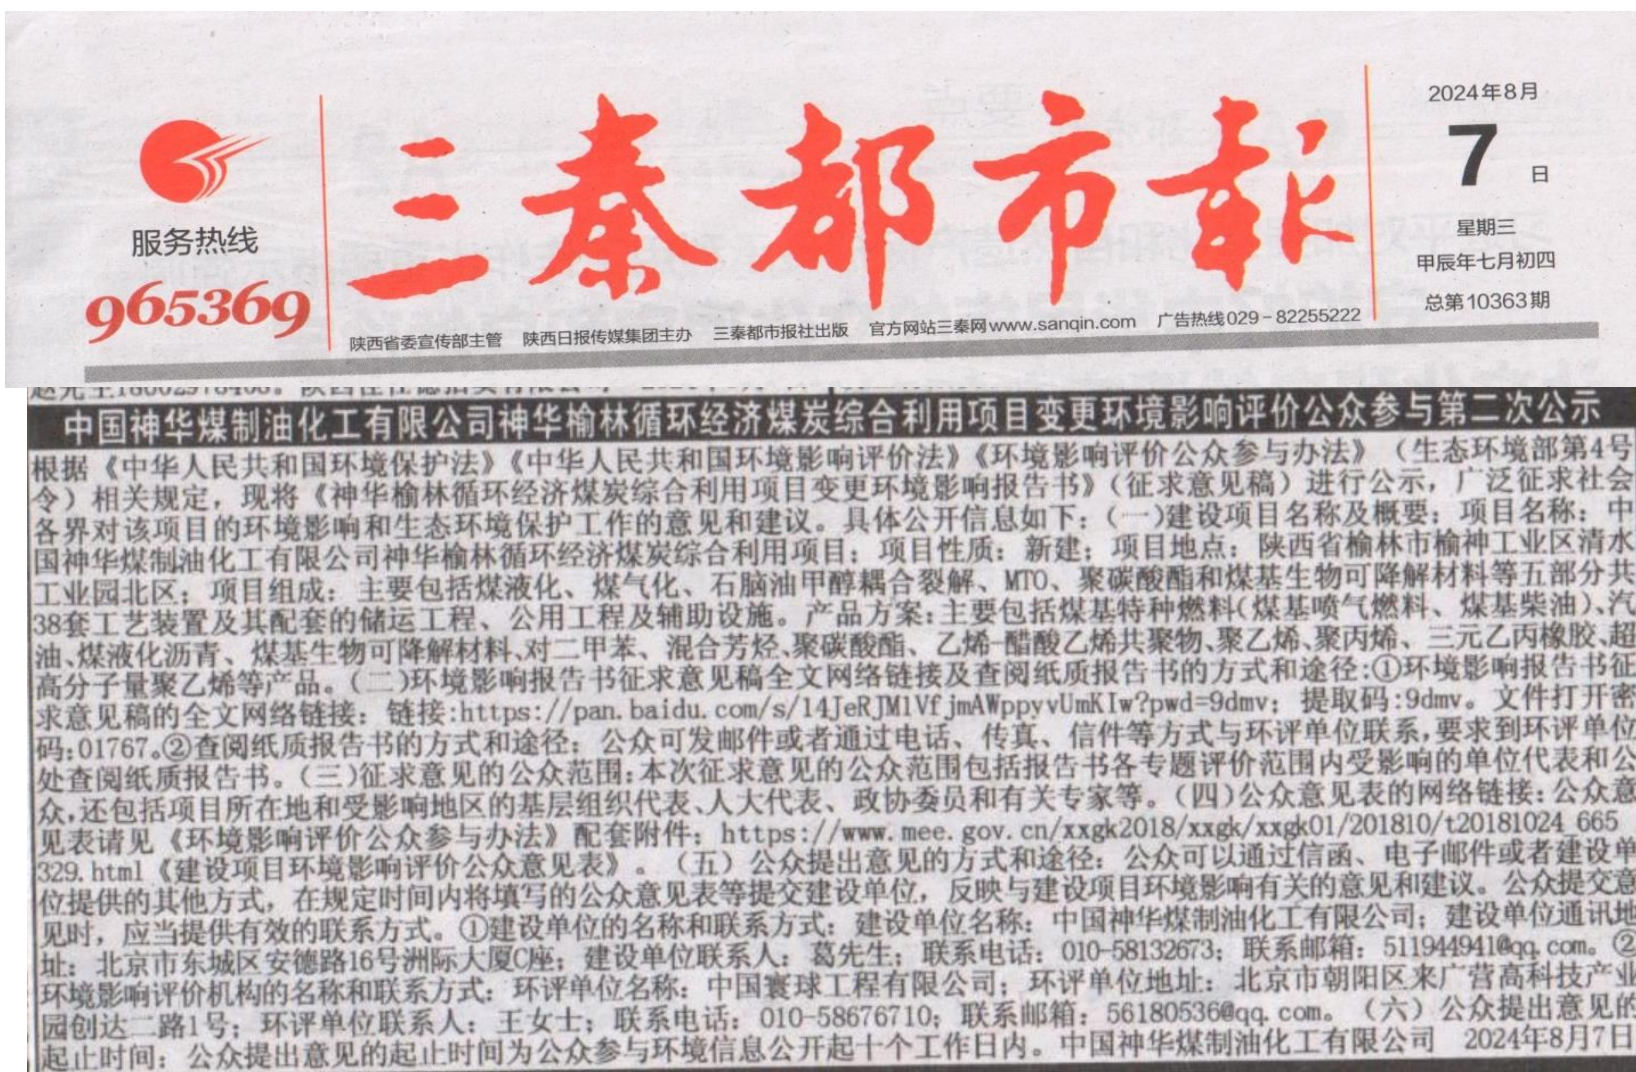 服务热线
965369
三秦都市报
2024年8月
7日
星期三
甲辰年七月初四
总第10363期
陕西省委宣传部主管 陕西日报传媒集团主办 三秦都市报社出版 官方网站三秦网www.sanqin.com 广告热线029-82255222
中国神华煤制油化工有限公司神华榆林循环经济煤炭综合利用项目变更环境影响评价公众参与第二次公示
根据《中华人民共和国环境保护法》《中华人民共和国环境影响评价法》《环境影响评价公众参与办法》（生态环境部第4号
令）相关规定，现将《神华榆林循环经济煤炭综合利用项目变更环境影响报告书》（征求意见稿）进行公示，广泛征求社会
各界对该项目的环境影响和生态环境保护工作的意见和建议。具体公开信息如下：（一）建设项目名称及概要：项目名称：中
国神华煤制油化工有限公司神华榆林循环经济煤炭综合利用项目；项目性质：新建；项目地点：陕西省榆林市榆神工业区清水
工业园北区；项目组成：主要包括煤液化、煤气化、石脑油甲醇耦合裂解、MTO、聚碳酸酯和煤基生物可降解材料等五部分共
38套工艺装置及其配套的储运工程、公用工程及辅助设施。产品方案：主要包括煤基特种燃料（煤基喷气燃料、煤基柴油）、汽
油、煤液化沥青、煤基生物可降解材料、对二甲苯、混合芳烃、聚碳酸酯、乙烯-醋酸乙烯共聚物、聚乙烯、聚丙烯、三元乙丙橡胶、超
高分子量聚乙烯等产品。（二）环境影响报告书征求意见稿全文网络链接及查阅纸质报告书的方式和途径：①环境影响报告书征
求意见稿的全文网络链接：链接：https://pan.baidu.com/s/14JeRJM1VfjmAWppyvUmKIw?pwd=9dmv；提取码：9dmv。文件打开密
码：01767。②查阅纸质报告书的方式和途径：公众可发邮件或者通过电话、传真、信件等方式与环评单位联系，要求到环评单位
处查阅纸质报告书。（三）征求意见的公众范围：本次征求意见的公众范围包括报告书各专题评价范围内受影响的单位代表和公
众，还包括项目所在地和受影响地区的基层组织代表、人大代表、政协委员和有关专家等。（四）公众意见表的网络链接：公众意
见表请见《环境影响评价公众参与办法》配套附件：https://www.mee.gov.cn/xxgk2018/xxgk/xxgk01/201810/t20181024_665
329.html《建设项目环境影响评价公众意见表》。（五）公众提出意见的方式和途径：公众可以通过信函、电子邮件或者建设单
位提供的其他方式，在规定时间内将填写的公众意见表等提交建设单位，反映与建设项目环境影响有关的意见和建议。公众提交意
见时，应当提供有效的联系方式。①建设单位的名称和联系方式：建设单位名称：中国神华煤制油化工有限公司；建设单位通讯地
址：北京市东城区安德路16号洲际大厦C座；建设单位联系人：葛先生；联系电话：010-58132673；联系邮箱：511944941@qq.com。②
环境影响评价机构的名称和联系方式：环评单位名称：中国寰球工程有限公司；环评单位地址：北京市朝阳区来广营高科技产业
园创达二路1号；环评单位联系人：王女士；联系电话：010-58676710；联系邮箱：56180536@qq.com。（六）公众提出意见的
起止时间：公众提出意见的起止时间为公众参与环境信息公开起十个工作日内。中国神华煤制油化工有限公司 2024年8月7日